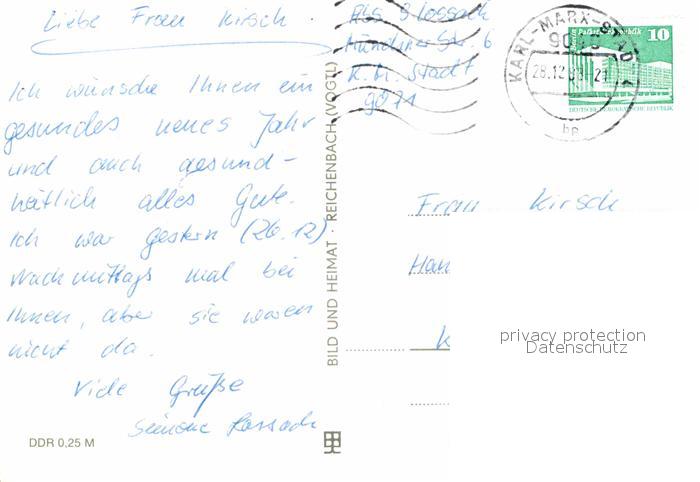 Liebe Frau Kirsch.
Ich wünsche Ihnen ein
gesundes neues Jahr
und auch gesund-
heitlich alles Gute.
Ich war gestern (26.12)
nachmittags mal bei
Ihnen, aber sie waren
nicht da.
Viele Grüße
Simone
DDR 0,25 M
BILD UND HEIMAT REICHENBACH (VOGTL)
Abs.
6
K.M. Stadt
9071
KARL-MARX-STADT
28.12.
bp
10
DEUTSCHE DEMOKRATISCHE REPUBLIK
Frau Kirsch
Han
K
privacy protection
Datenschutz